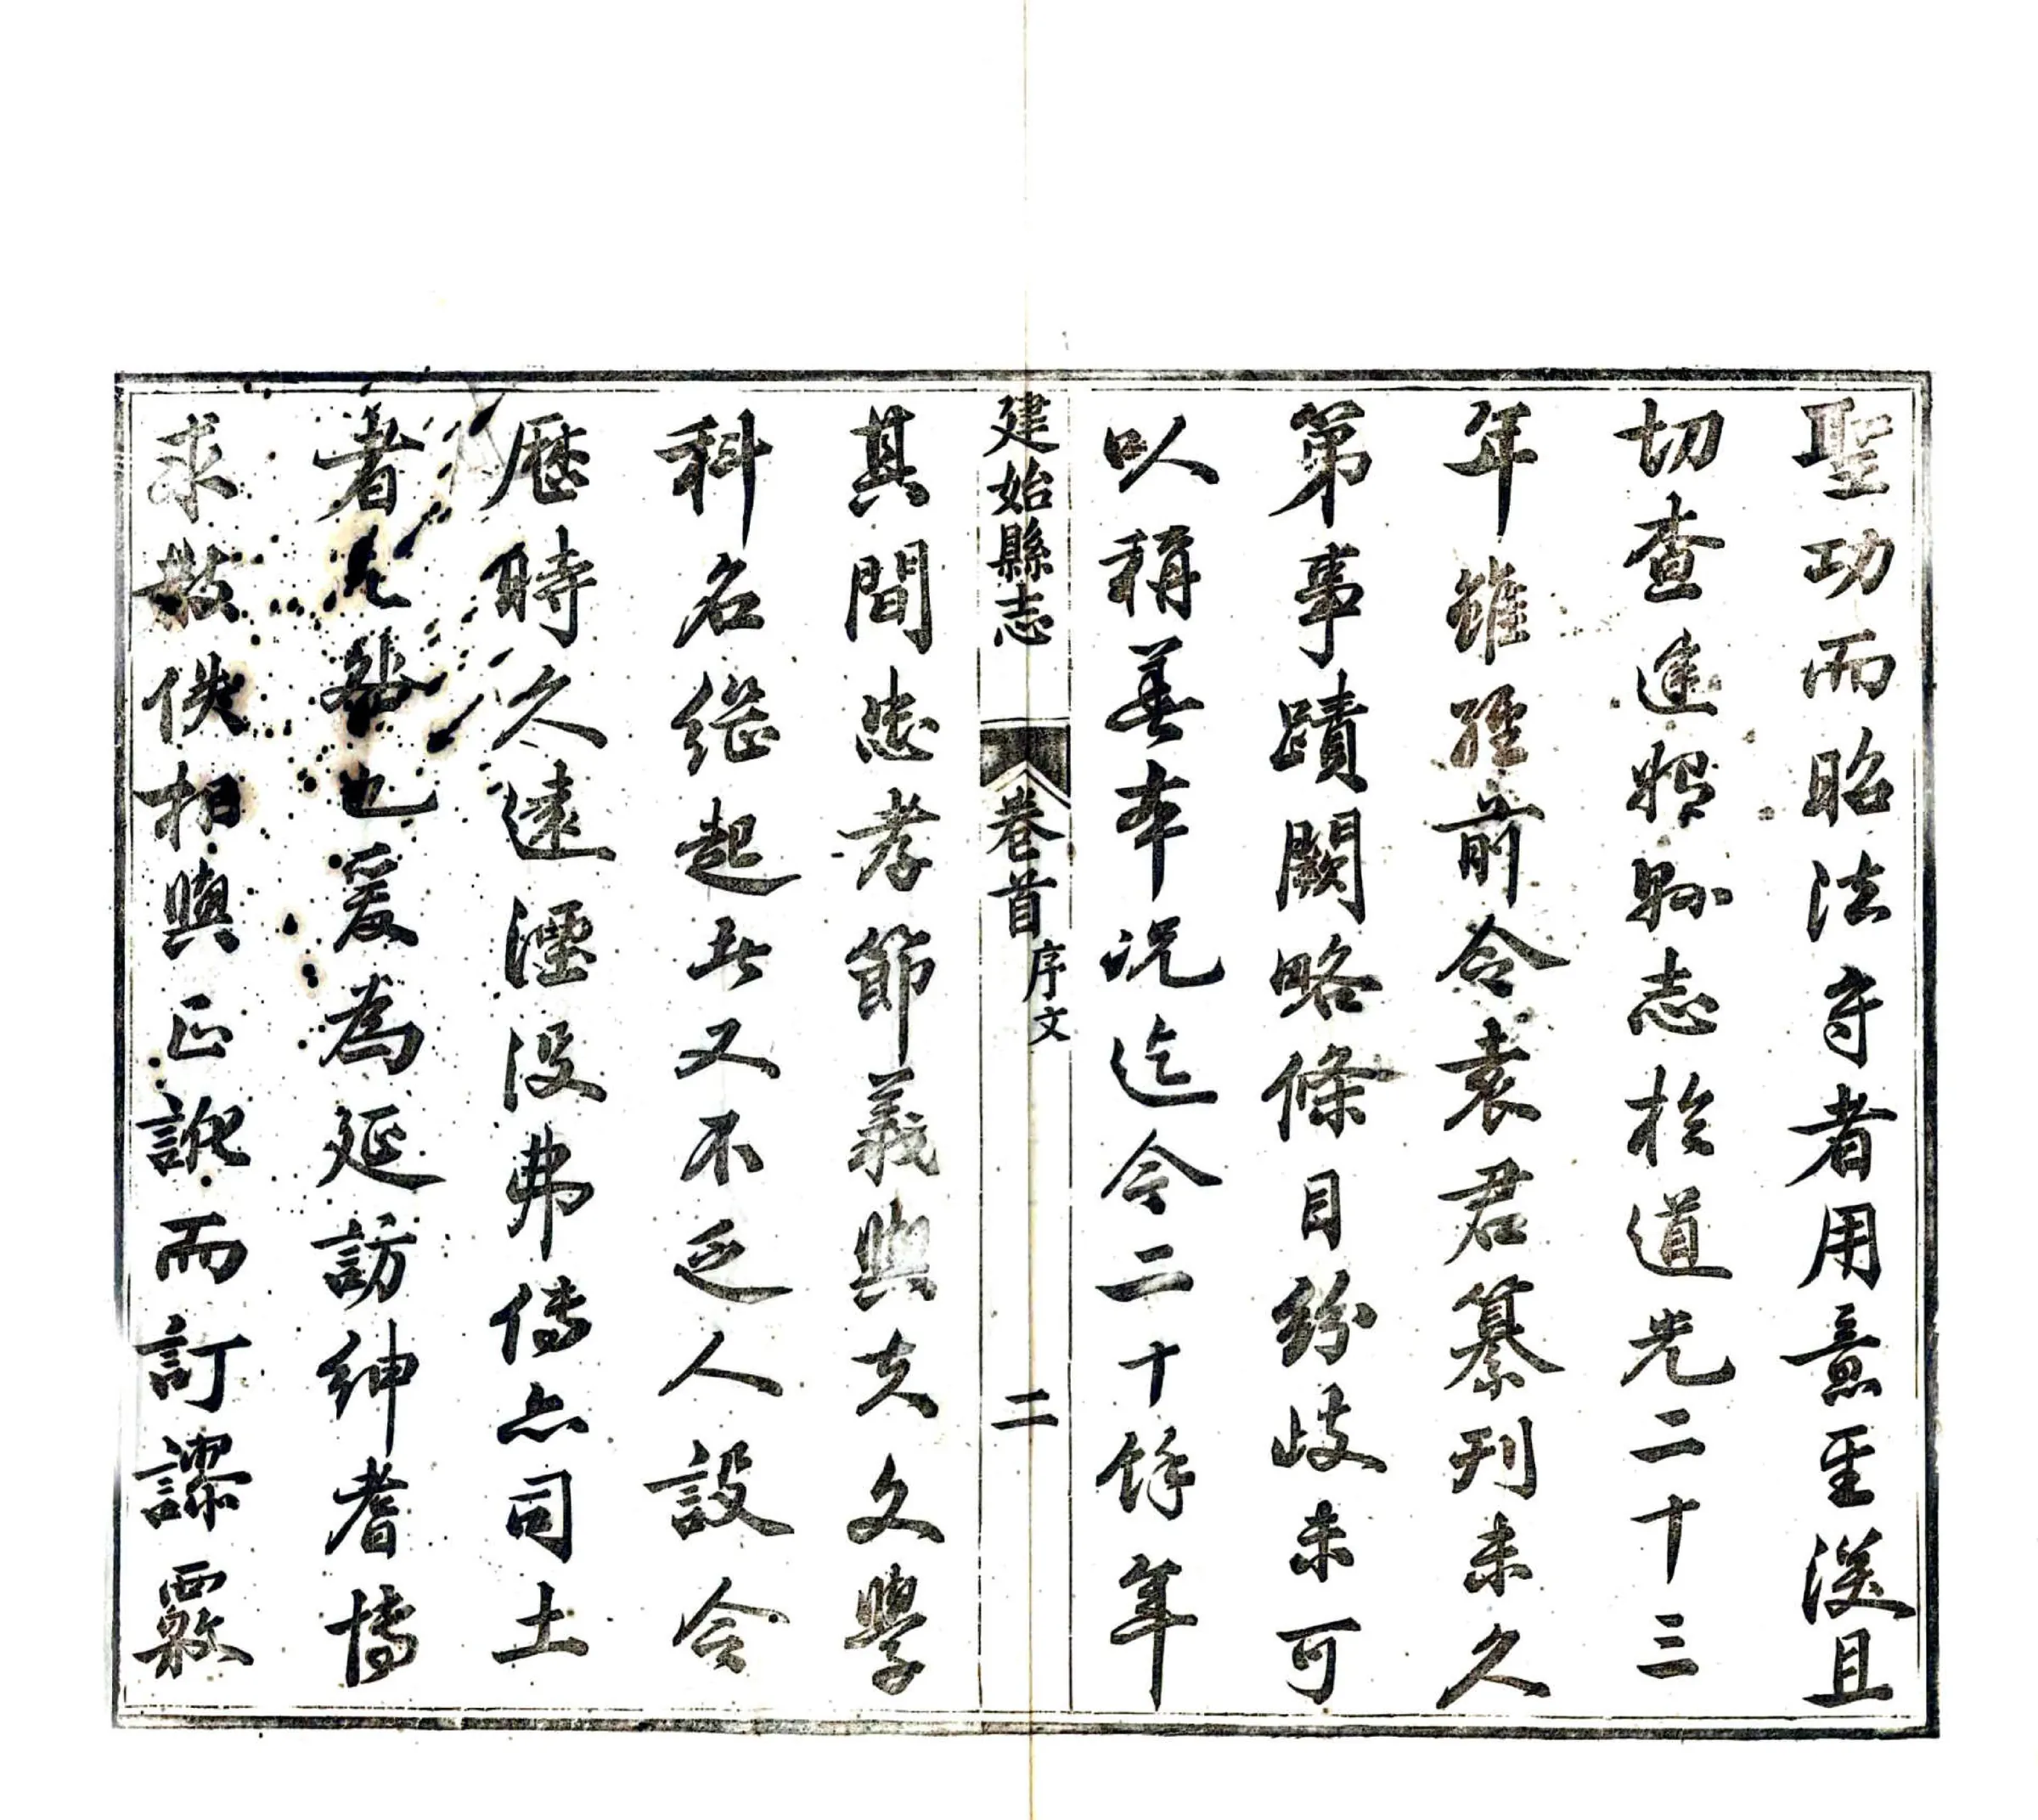 聖功而昭法守者用意至深且
切查建始縣志於道光二十三
年雖經前令袁君纂刊未久
第事蹟闕略條目紛歧未可
以稱善本況迄今二十餘年
建始縣志 卷首 序文 二
其間忠孝節義與夫文學
科名繼起者又不乏人設令
歷時久遠湮沒弗傳亦司土
者之咎也爰為延訪紳耆博
求散佚相與正訛而訂謬覈